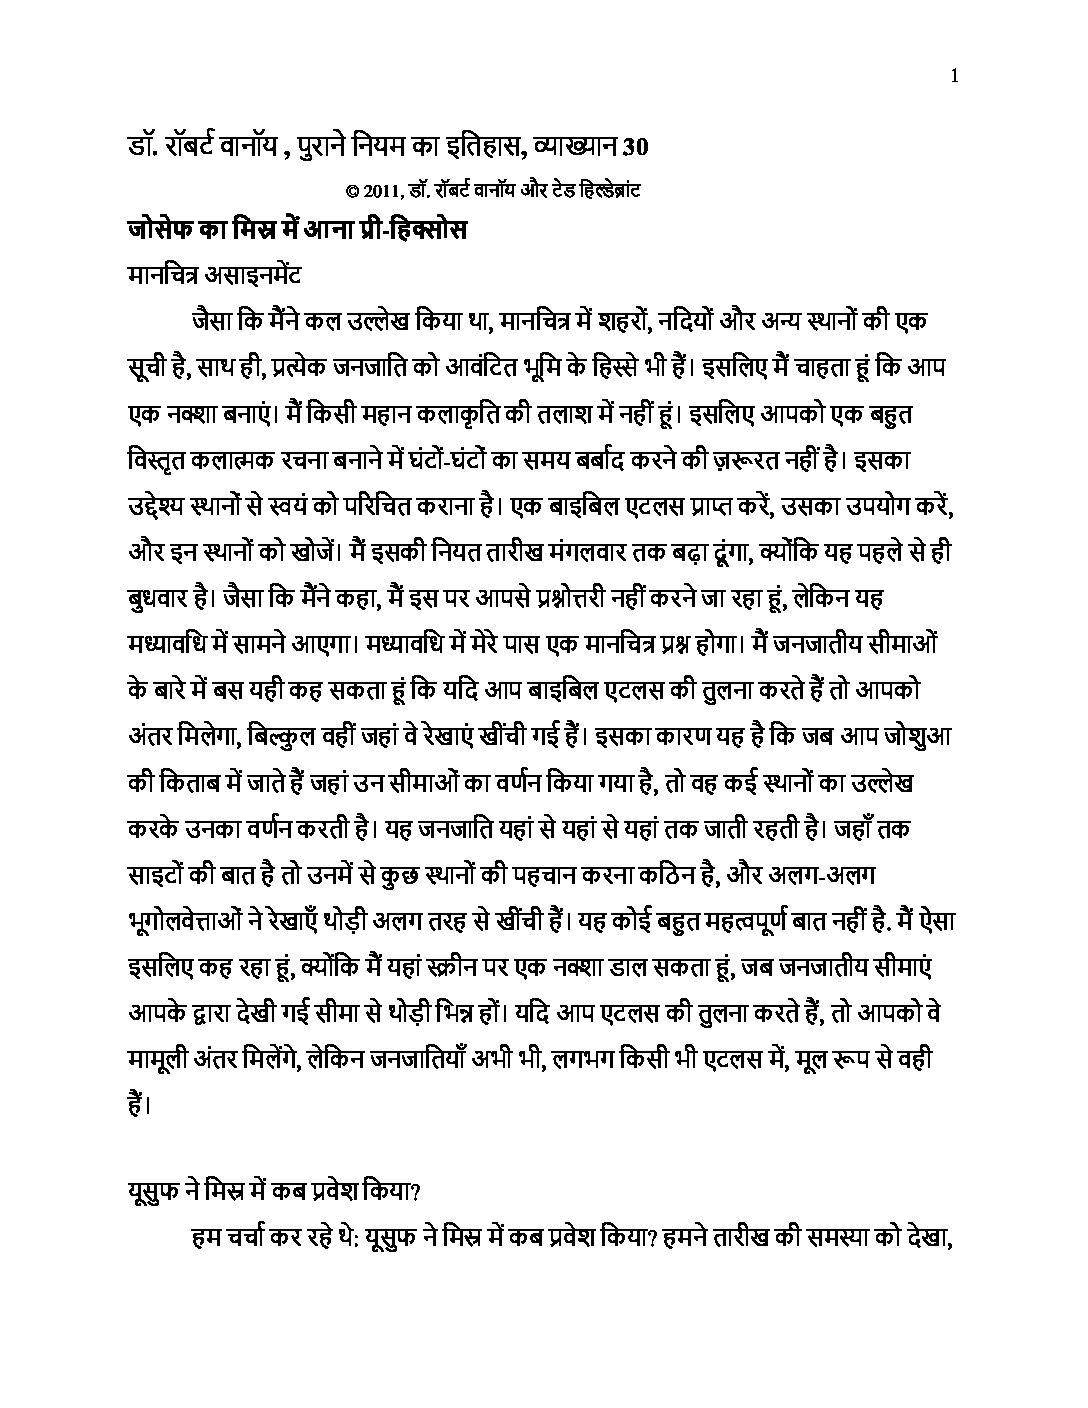 1
डॉ. रॉबर्ट वानॉय , पुराने नियम का इतिहास, व्याख्यान 30
© 2011, डॉ. रॉबर्ट वानॉय और टेड हिल्डेब्रांट
जोसेफ का मिस्र में आना प्री-हिक्सोस
मानचित्र असाइनमेंट
जैसा कि मैंने कल उल्लेख किया था, मानचित्र में शहरों, नदियों और अन्य स्थानों की एक
सूची है, साथ ही, प्रत्येक जनजाति को आवंटित भूमि के हिस्से भी हैं। इसलिए मैं चाहता हूं कि आप
एक नक्शा बनाएं। मैं किसी महान कलाकृति की तलाश में नहीं हूं। इसलिए आपको एक बहुत
विस्तृत कलात्मक रचना बनाने में घंटों-घंटों का समय बर्बाद करने की ज़रूरत नहीं है। इसका
उद्देश्य स्थानों से स्वयं को परिचित कराना है। एक बाइबिल एटलस प्राप्त करें, उसका उपयोग करें,
और इन स्थानों को खोजें। मैं इसकी नियत तारीख मंगलवार तक बढ़ा दूंगा, क्योंकि यह पहले से ही
बुधवार है। जैसा कि मैंने कहा, मैं इस पर आपसे प्रश्नोत्तरी नहीं करने जा रहा हूं, लेकिन यह
मध्यावधि में सामने आएगा। मध्यावधि में मेरे पास एक मानचित्र प्रश्न होगा। मैं जनजातीय सीमाओं
के बारे में बस यही कह सकता हूं कि यदि आप बाइबिल एटलस की तुलना करते हैं तो आपको
अंतर मिलेगा, बिल्कुल वहीं जहां वे रेखाएं खींची गई हैं। इसका कारण यह है कि जब आप जोशुआ
की किताब में जाते हैं जहां उन सीमाओं का वर्णन किया गया है, तो वह कई स्थानों का उल्लेख
करके उनका वर्णन करती है। यह जनजाति यहां से यहां से यहां तक जाती रहती है। जहाँ तक
साइटों की बात है तो उनमें से कुछ स्थानों की पहचान करना कठिन है, और अलग-अलग
भूगोलवेत्ताओं ने रेखाएँ थोड़ी अलग तरह से खींची हैं। यह कोई बहुत महत्वपूर्ण बात नहीं है. मैं ऐसा
इसलिए कह रहा हूं, क्योंकि मैं यहां स्क्रीन पर एक नक्शा डाल सकता हूं, जब जनजातीय सीमाएं
आपके द्वारा देखी गई सीमा से थोड़ी भिन्न हों। यदि आप एटलस की तुलना करते हैं, तो आपको वे
मामूली अंतर मिलेंगे, लेकिन जनजातियाँ अभी भी, लगभग किसी भी एटलस में, मूल रूप से वही
हैं।
यूसुफ ने मिस्र में कब प्रवेश किया?
हम चर्चा कर रहे थे: यूसुफ ने मिस्र में कब प्रवेश किया? हमने तारीख की समस्या को देखा,